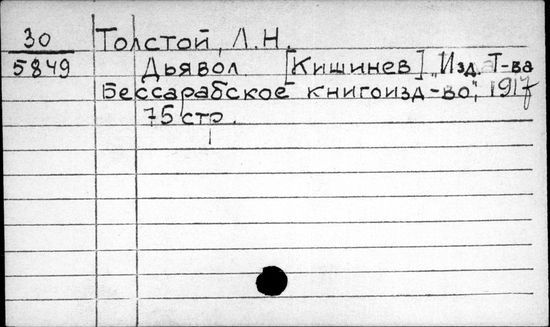 30 Толстой, Л.Н.
5849 Дьявол [Кишинев] "Изд. Т-ва
Бессарабское книгоизд-во", 1917
75 стр.